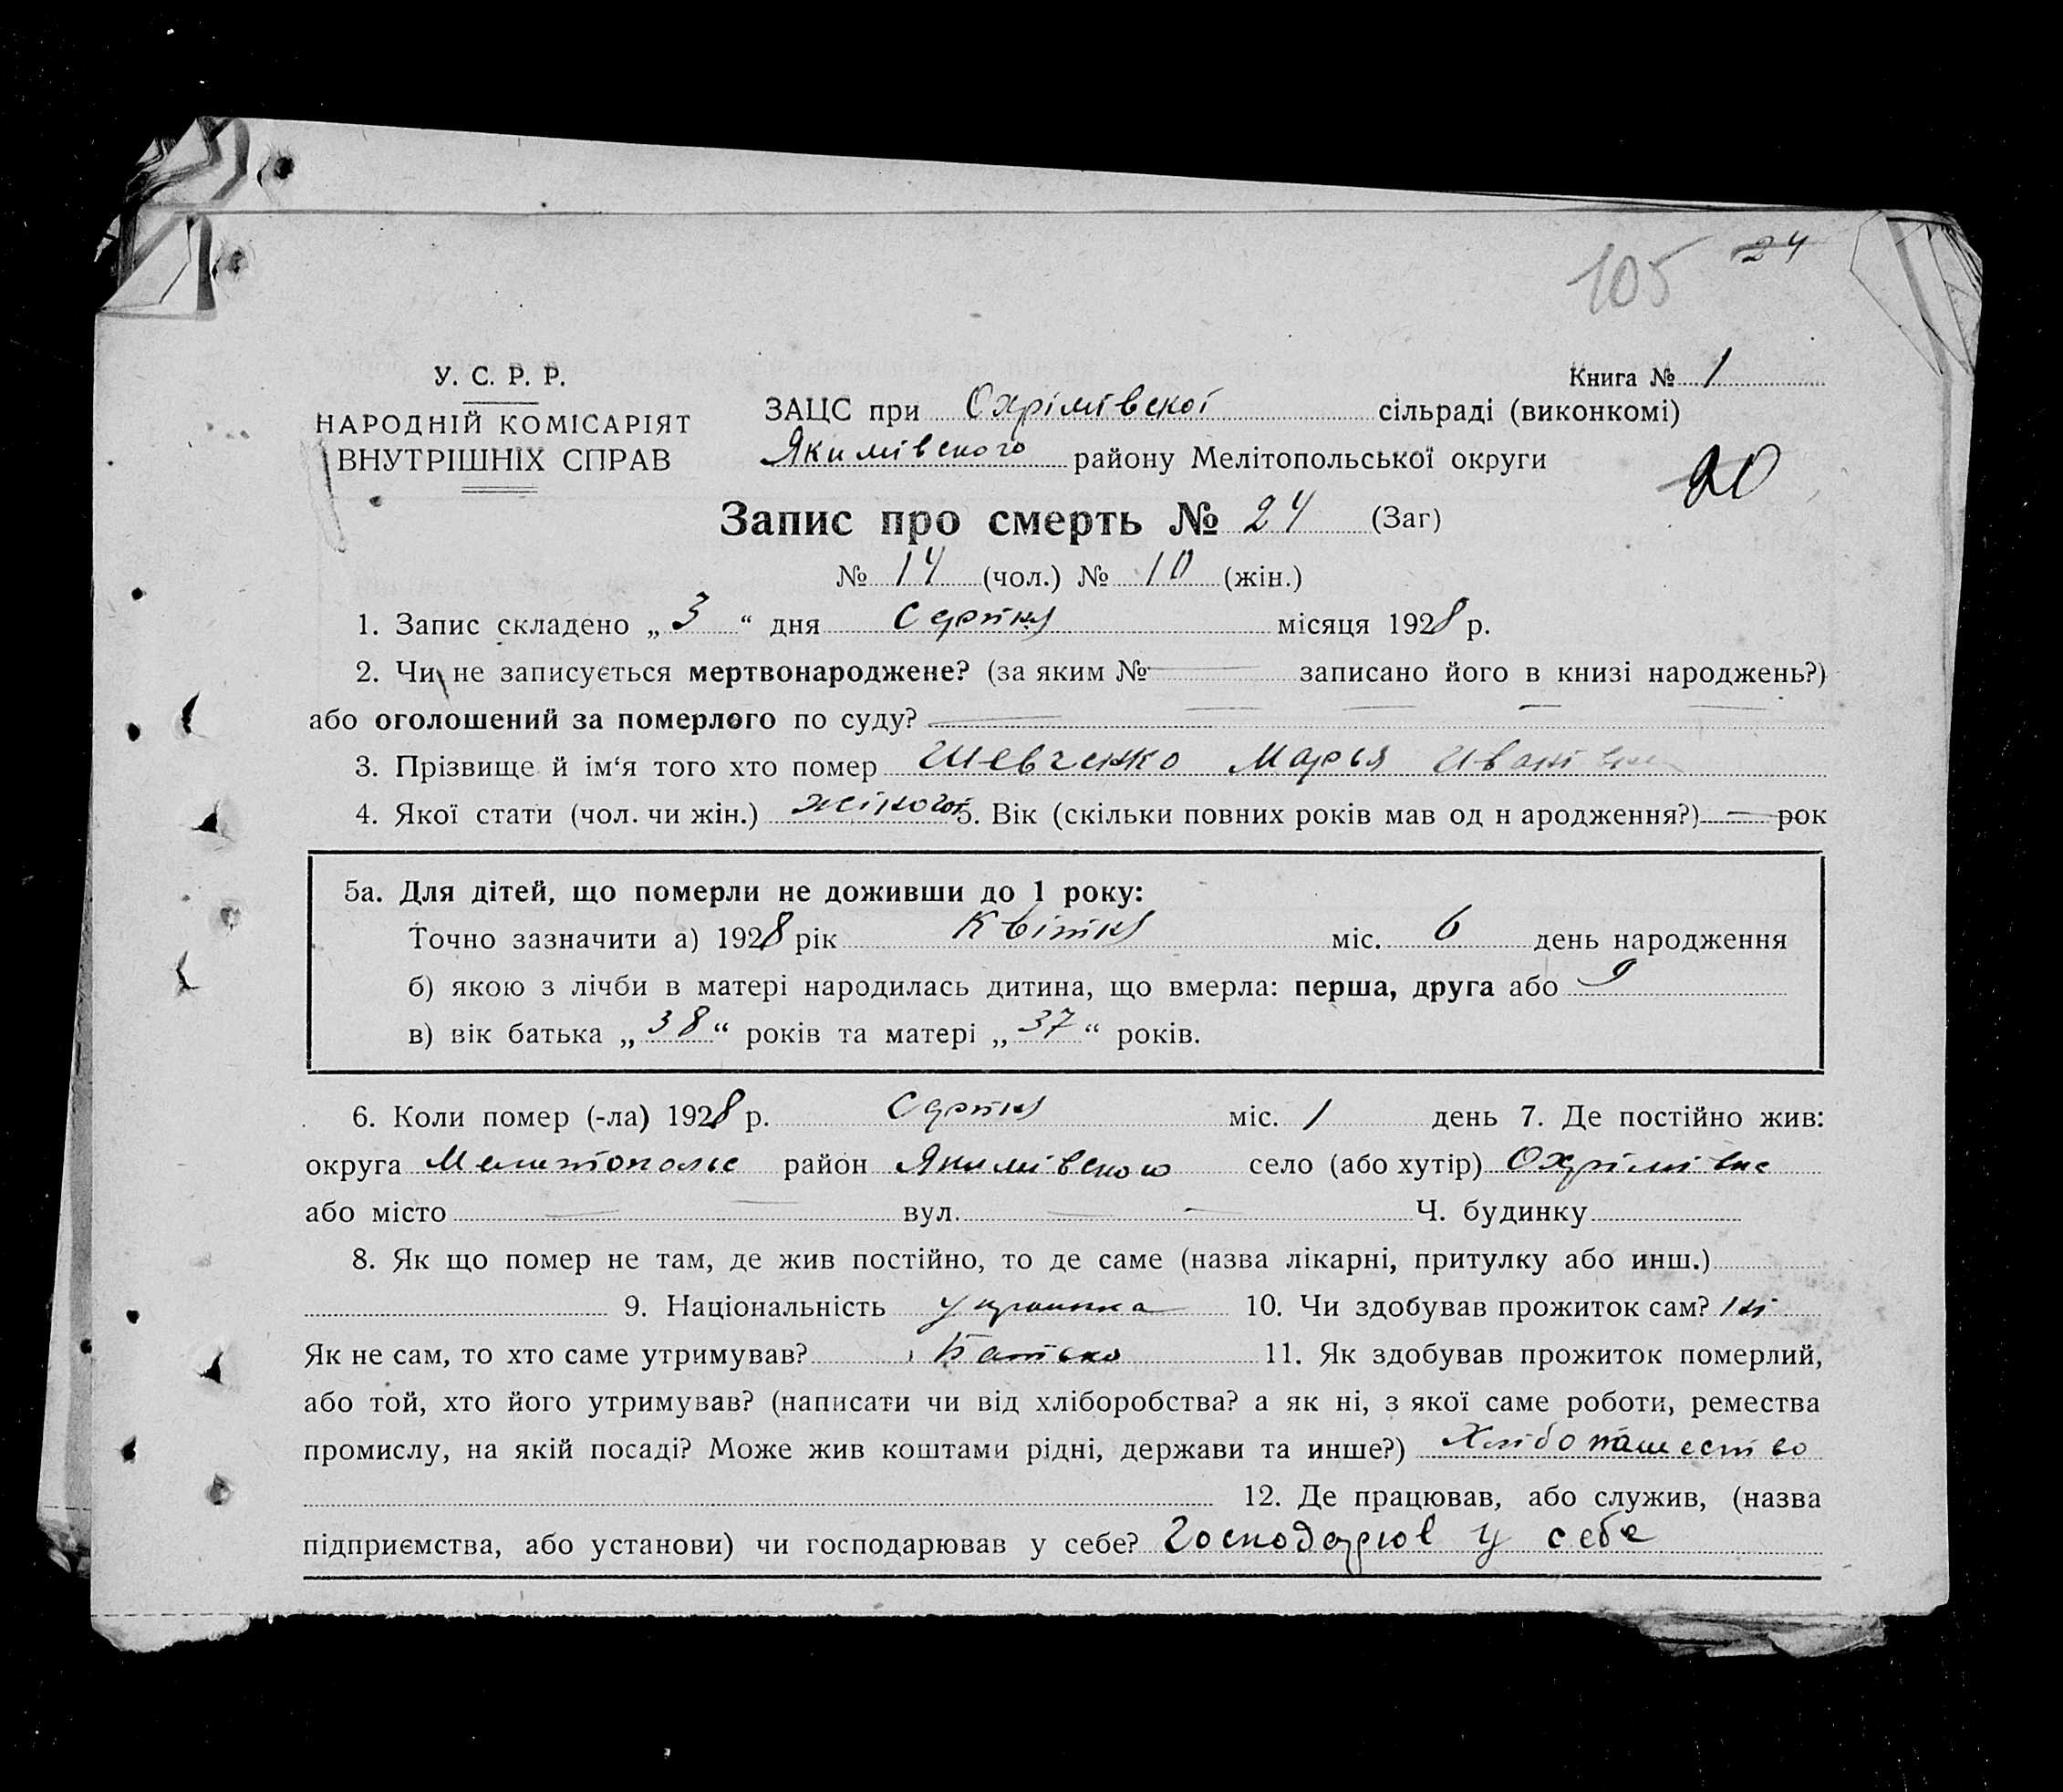 105 24
У. С. Р. Р.
НАРОДНІЙ КОМІСАРІЯТ
ВНУТРІШНІХ СПРАВ
Книга № 1
ЗАЦС при Охрімівскої сільраді (виконкомі)
Якимівского району Мелітопольської округи
20
Запис про смерть № 24 (Заг)
№ 14 (чол.) № 10 (жін.)
1. Запис складено „ 3 “ дня Серпня місяця 1928 р.
2. Чи не записується мертвонароджене? (за яким № — записано його в книзі народжень?)
або оголошений за померлого по суду? —
3. Прізвище й ім‘я того хто помер Шевченко Марья Иванівна
4. Якої стати (чол. чи жін.) жіночої 5. Вік (скільки повних років мав од н ародження?) — рок
5а. Для дітей, що померли не доживши до 1 року:
Точно зазначити а) 1928 рік Квітня міс. 6 день народження
б) якою з лічби в матері народилась дитина, що вмерла: перша, друга або 9
в) вік батька „ 38 “ років та матері „ 37 “ років.
6. Коли помер (-ла) 1928 р. Серпня міс. 1 день 7. Де постійно жив:
округа Мелитопольс район Якимівского село (або хутір) Охрімівка
або місто — вул. — Ч. будинку
8. Як що помер не там, де жив постійно, то де саме (назва лікарні, притулку або инш.)
9. Національність українка 10. Чи здобував прожиток сам? ні
Як не сам, то хто саме утримував? Батько 11. Як здобував прожиток померлий,
або той, хто його утримував? (написати чи від хліборобства? а як ні, з якої саме роботи, ремества
промислу, на якій посаді? Може жив коштами рідні, держави та инше?) Хлібопашество
12. Де працював, або служив, (назва
підприємства, або установи) чи господарював у себе? Господарюв у себе